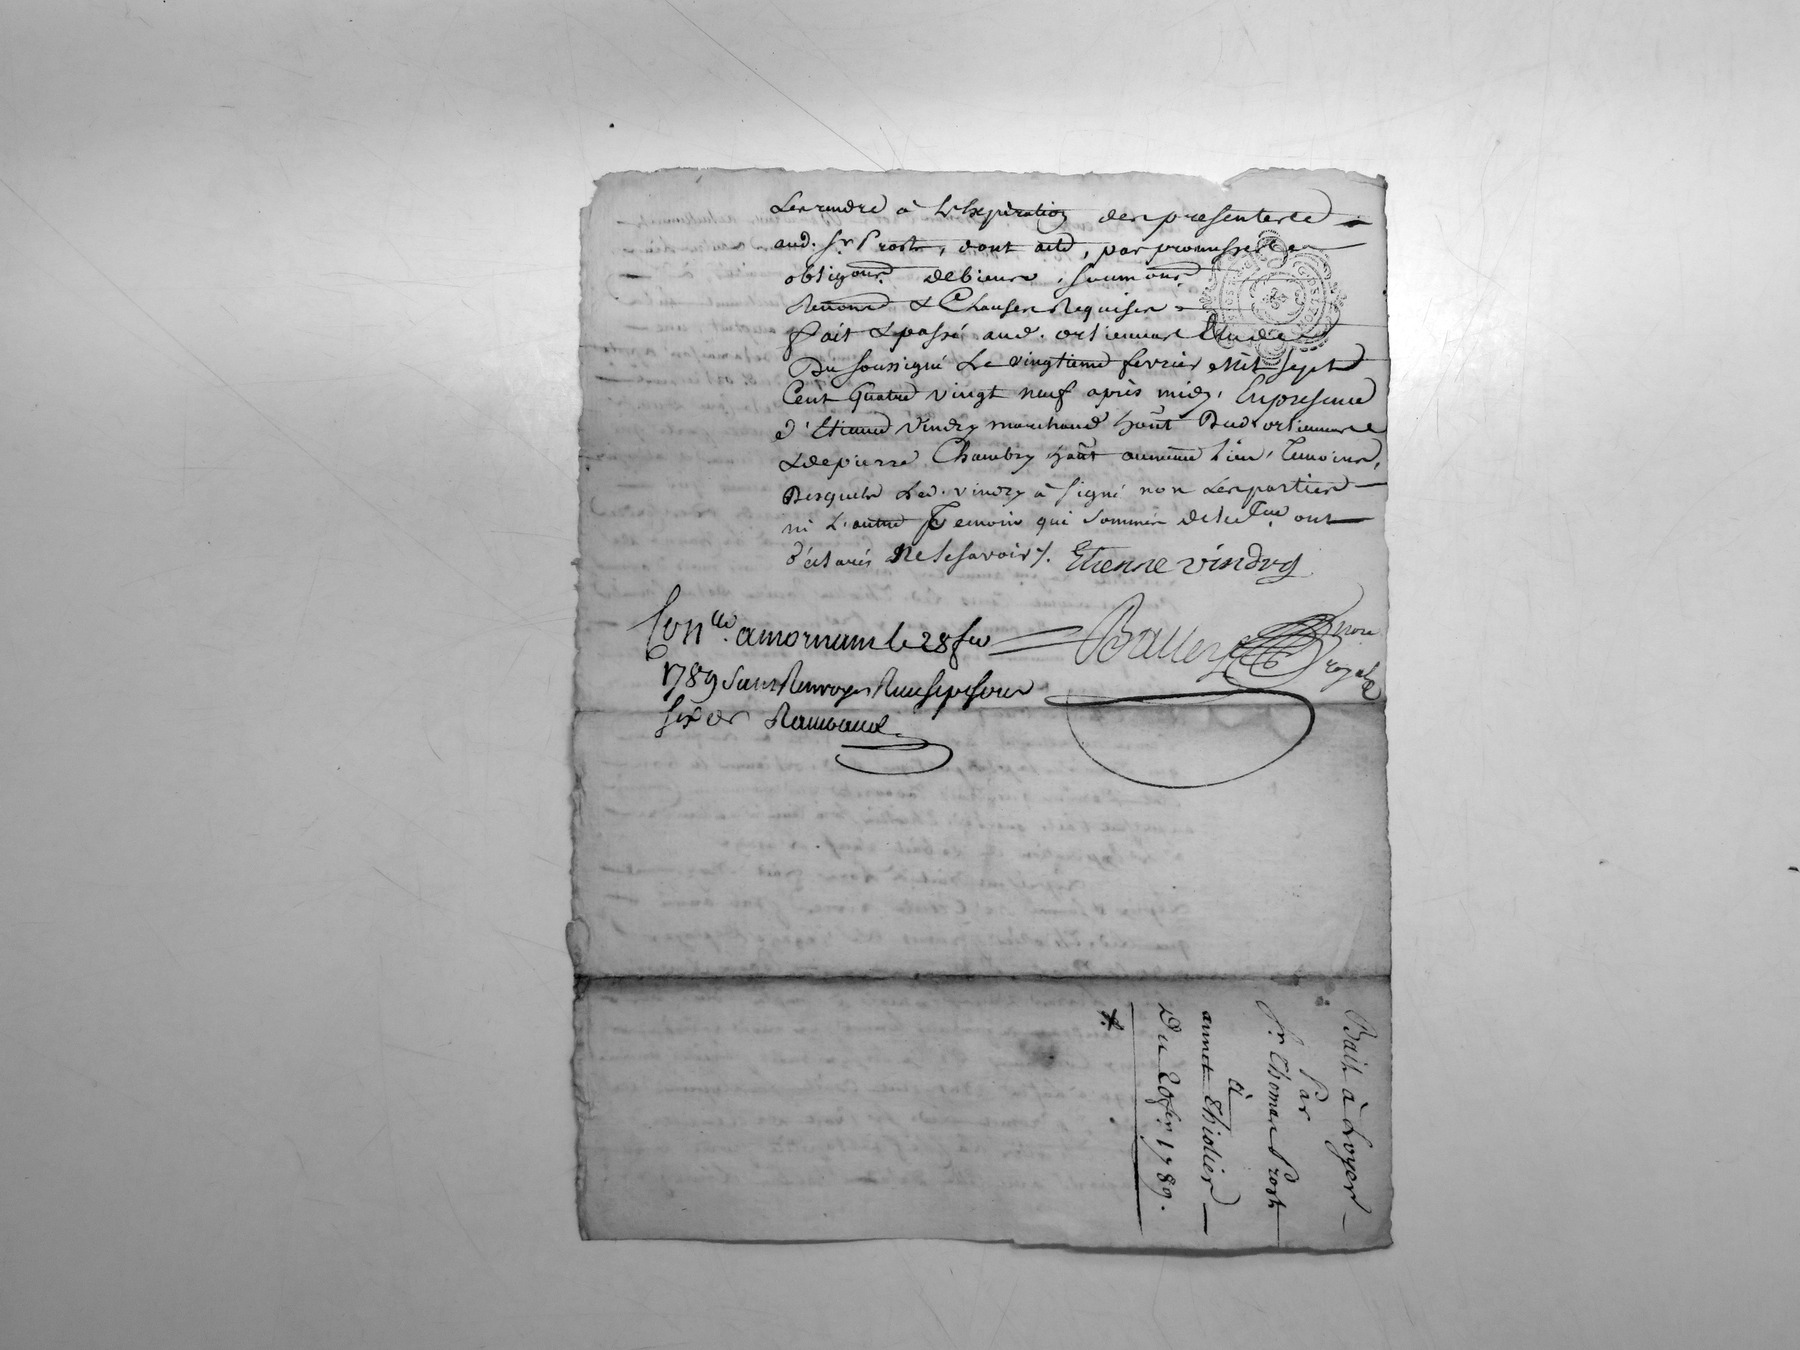 Les rendre à Lexpiration des presentes
aud. Sr. Prost, dont acte, par promesses
obligons. de biens, soumons.
Renond & Clauses Requises
fait & passé aud. orlienas Etude
Du soussigné Le vingtieme fevrier Mil sept
Cent Quatre vingt neuf après midy, En presence
d'Etienne Vindry marchand hant Dud. orlienas
& de pierre Chambry hant au meme Lieu, Temoins,
Desquels Led. vindry à signé non Les parties
ni L'autre Temoin qui sommés de ce ont
déclarés Ne le savoir /. Etienne vindry
Conlle. a mornant le 28 fev
1789 Sans Renvoy Reçu sept sous
six ds Rambaud
Balley nore
royal
Bail à Loyer
Par
Sr. Thomas Prost
à
annet Thiolier
Du 20 fer. 1789.